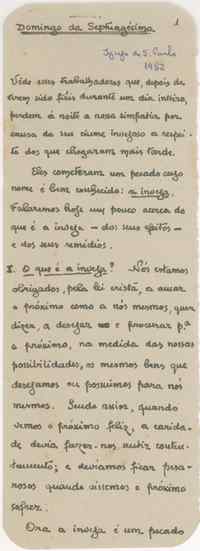 1
Domingo da Septuagésima
Igreja de S. Paulo
1952
Vêde esses trabalhadores que, depois de
terem sido fiéis durante um dia inteiro,
perdem à noite a nossa simpatia por
causa do seu ciume invejoso a respei-
to dos que chegaram mais tarde.
Eles cometeram um pecado cujo
nome é bem conhecido: a inveja.
Falaremos hoje um pouco acerca do
que é a inveja — dos seus efeitos —
e dos seus remédios.
I. O que é a inveja? Nós estamos
obrigados, pela lei cristã, a amar
o próximo como a nós mesmos, quer
dizer, a desejar e procurar p.ª
o próximo, na medida das nossas
possibilidades, os mesmos bens que
desejamos ou possuimos para nós
mesmos. Sendo assim, quando
vemos o próximo feliz, a carida-
de devia fazer-nos sentir conten-
tamento; e deviamos ficar pesa-
rosos quando vissemos o próximo
sofrer.
Ora a inveja é um pecado